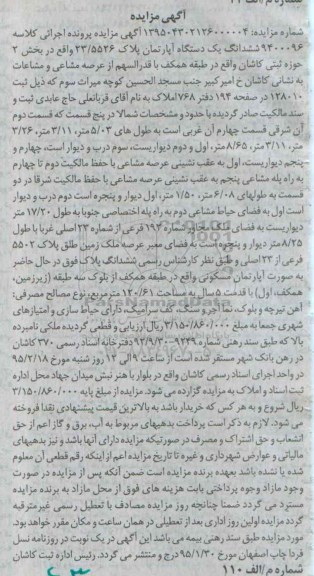 آگهی مزایده
شماره مزایده: ۱۳۹۵۰۴۳۰۲۱۲۶۰۰۰۰۰۴ آگهی مزایده پرونده اجرائی کلاسه
۹۴۰۰۰۹۶ ششدانگ یک دستگاه آپارتمان پلاک ۲۳/۵۵۲۶ واقع در بخش ۲
حوزه ثبتی کاشان واقع در طبقه همکف با قدرالسهم از عرصه مشاعی و مشاعات
به نشانی کاشان خ امیر کبیر جنب مسجد الحسین کوچه میراث سوم که ذیل ثبت
۱۳۸۰۱۰ در صفحه ۱۹۴ دفتر ۷۶۸ املاک به نام آقای قربانعلی حاج عابدی ثبت و
سند مالکیت صادر گردیده با حدود و مشخصات شمالا در پنج قسمت که قسمت دوم
آن شرقی قسمت چهارم آن غربی است به طول های ۵/۰۳ متر، ۳/۱۱ متر، ۳/۲۶
متر، ۳/۱۱ متر، ۸/۶۵ متر، اول و دوم دیواریست، سوم درب و دیوار است، چهارم و
پنجم دیواریست، اول به عقب نشینی عرصه مشاعی با حفظ مالکیت دوم تا چهارم
به راه پله مشاعی پنجم به عقب نشینی عرصه مشاعی با حفظ مالکیت شرقا در دو
قسمت به طولهای ۶/۰۸ متر، ۱/۵۰ متر، اول دیوار و پنجره است دوم درب و دیوار
است اول به فضای حیاط مشاعی دوم به راه پله اختصاصی جنوبا به طول ۱۷/۲۰ متر
دیواریست به فضای ملک مجاور شماره ۱۹۴ فرعی از شماره ۲۳ اصلی غربا با طول
۸/۲۵ متر دیوار و پنجره است به فضای معبر عرصه ملک زمین طلق پلاک ۵۵۰۲
فرعی از ۲۳ اصلی و طبق نظر کارشناس رسمی ششدانگ پلاک فوق در حال حاضر
به صورت آپارتمان مسکونی واقع در طبقه همکف از بلوک سه طبقه (زیرزمین،
همکف، اول) با قدمت ۵ سال به مساحت ۱۲۰/۶۱ متر مربع، نوع مصالح مصرفی:
آهن تیرچه و بلوک، نما آجر و سنگ، کف سرامیک، دارای حیاط سازی و امتیازهای
شهری جمعا به مبلغ ۳/۱۵۰/۸۶۰/۰۰۰ ریال ارزیابی و قطعی گردیده ملکی نامبرده
بالا که طبق سند رهنی شماره ۹۲/۹/۳۰-۹۲۳۹ دفترخانه اسناد رسمی ۳۷۰ کاشان
در رهن بانک شهر مستقر شده است از ساعت ۹ الی ۱۲ روز شنبه مورخ ۹۵/۲/۱۸
در واحد اجرای اسناد رسمی کاشان واقع در بلوار با هنر نبش میدان جهاد محل اداره
ثبت اسناد و املاک به مزایده گزارده می شود. مزایده از مبلغ پایه ۳/۱۵۰/۸۶۰/۰۰۰
ریال شروع و به هر کس که خریدار باشد به بالاترین قیمت پیشنهادی نقدا فروخته
می شود. لازم به ذکر است پرداخت بدهیهای مربوط به آب، برق و گاز اعم از حق
انشعاب و حق اشتراک و مصرف در صورتیکه مزایده دارای آنها باشد و نیز بدهیهای
مالیاتی و عوارض شهرداری و غیره تا تاریخ مزایده اعم از اینکه رقم قطعی آن معلوم
شده یا نشده باشد بعهده برنده مزایده است ضمن آنکه پس از مزایده در صورت
وجود مازاد وجوه پرداختی بابت هزینه های فوق از محل مازاد به برنده مزایده
مسترد می گردد ضمنا چنانچه روز مزایده مصادف با تعطیل رسمی غیر مترقبه
گردد مزایده اولین روز اداری بعد از تعطیلی در همان ساعت و مکان مقرر خواهد بود.
مورد مزایده طبق سند رهنی بیمه می باشد این آگهی در یک نوبت در روزنامه نسل
فردا چاپ اصفهان مورخ ۹۵/۱/۳۰ درج و منتشر می گردد. رئیس اداره ثبت کاشان
شماره م/الف ۱۱۰